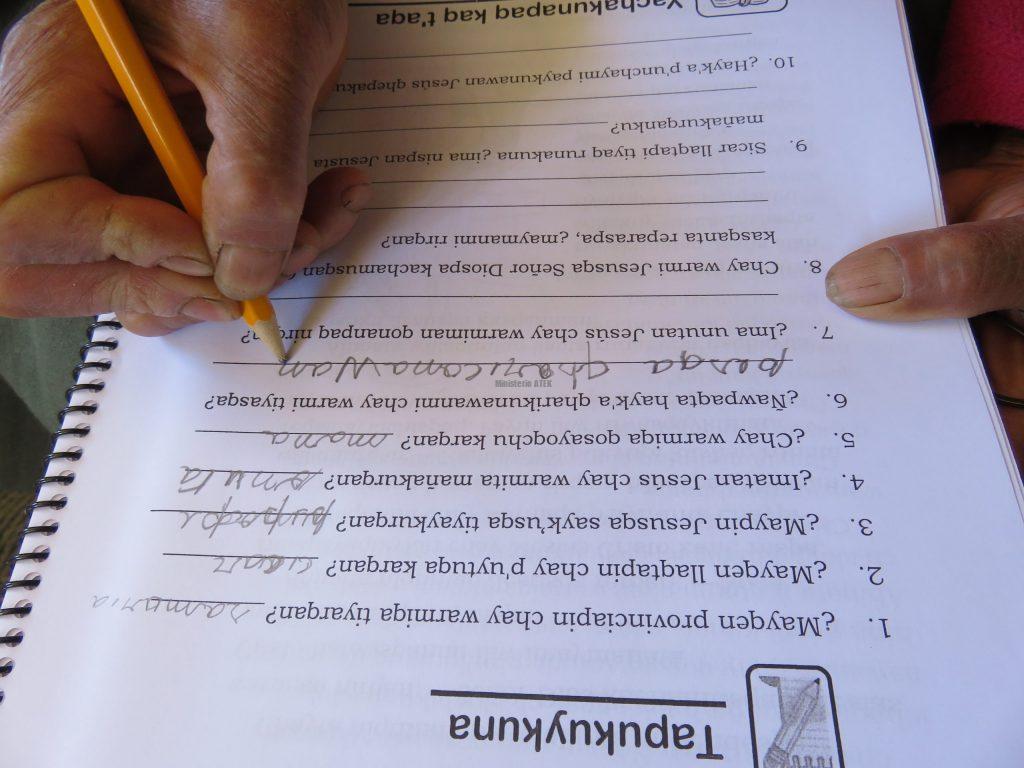 Tapukuykuna
1. ¿Mayqen provinciapin chay warmiqa tiyarqan? samaria
2. ¿Mayqen llaqtapin chay p'uytuqa karqan?
3. ¿Maypin Jesusqa sayk'usqa tiyaykurqan?
4. ¿Imatan Jesús chay warmita mañakurqan?
5. ¿Chay warmiqa qosayoqchu karqan? mana
6. ¿Ñawpaqta hayk'a qharikunawanmi chay warmi tiyasqa?
pesqa
7. ¿Ima unutan Jesús chay warmiman qonanpaq nirqan?
8. Chay warmi Jesusqa Señor Diospa kachamusqan
kasqanta reparaspa, ¿maymanmi rirqan?
9. Sicar llaqtapi tiyaq runakuna ¿ima nispan Jesusta
mañakurqanku?
10. ¿Hayk'a p'unchaymi paykunawan Jesús qhepaku
Yachakunapaq kaq t'aqa
Ministerio ATEK